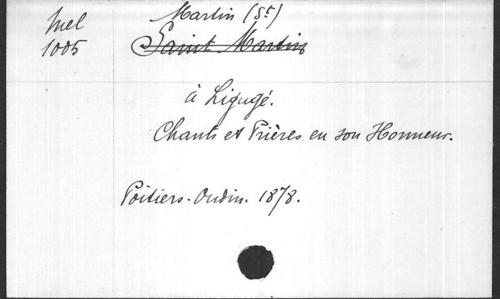 Mel
1005
Martin (St)
Saint Martin
à Ligugé.
Chants et Prières en son Honneur.
Poitiers. Oudin. 1878.